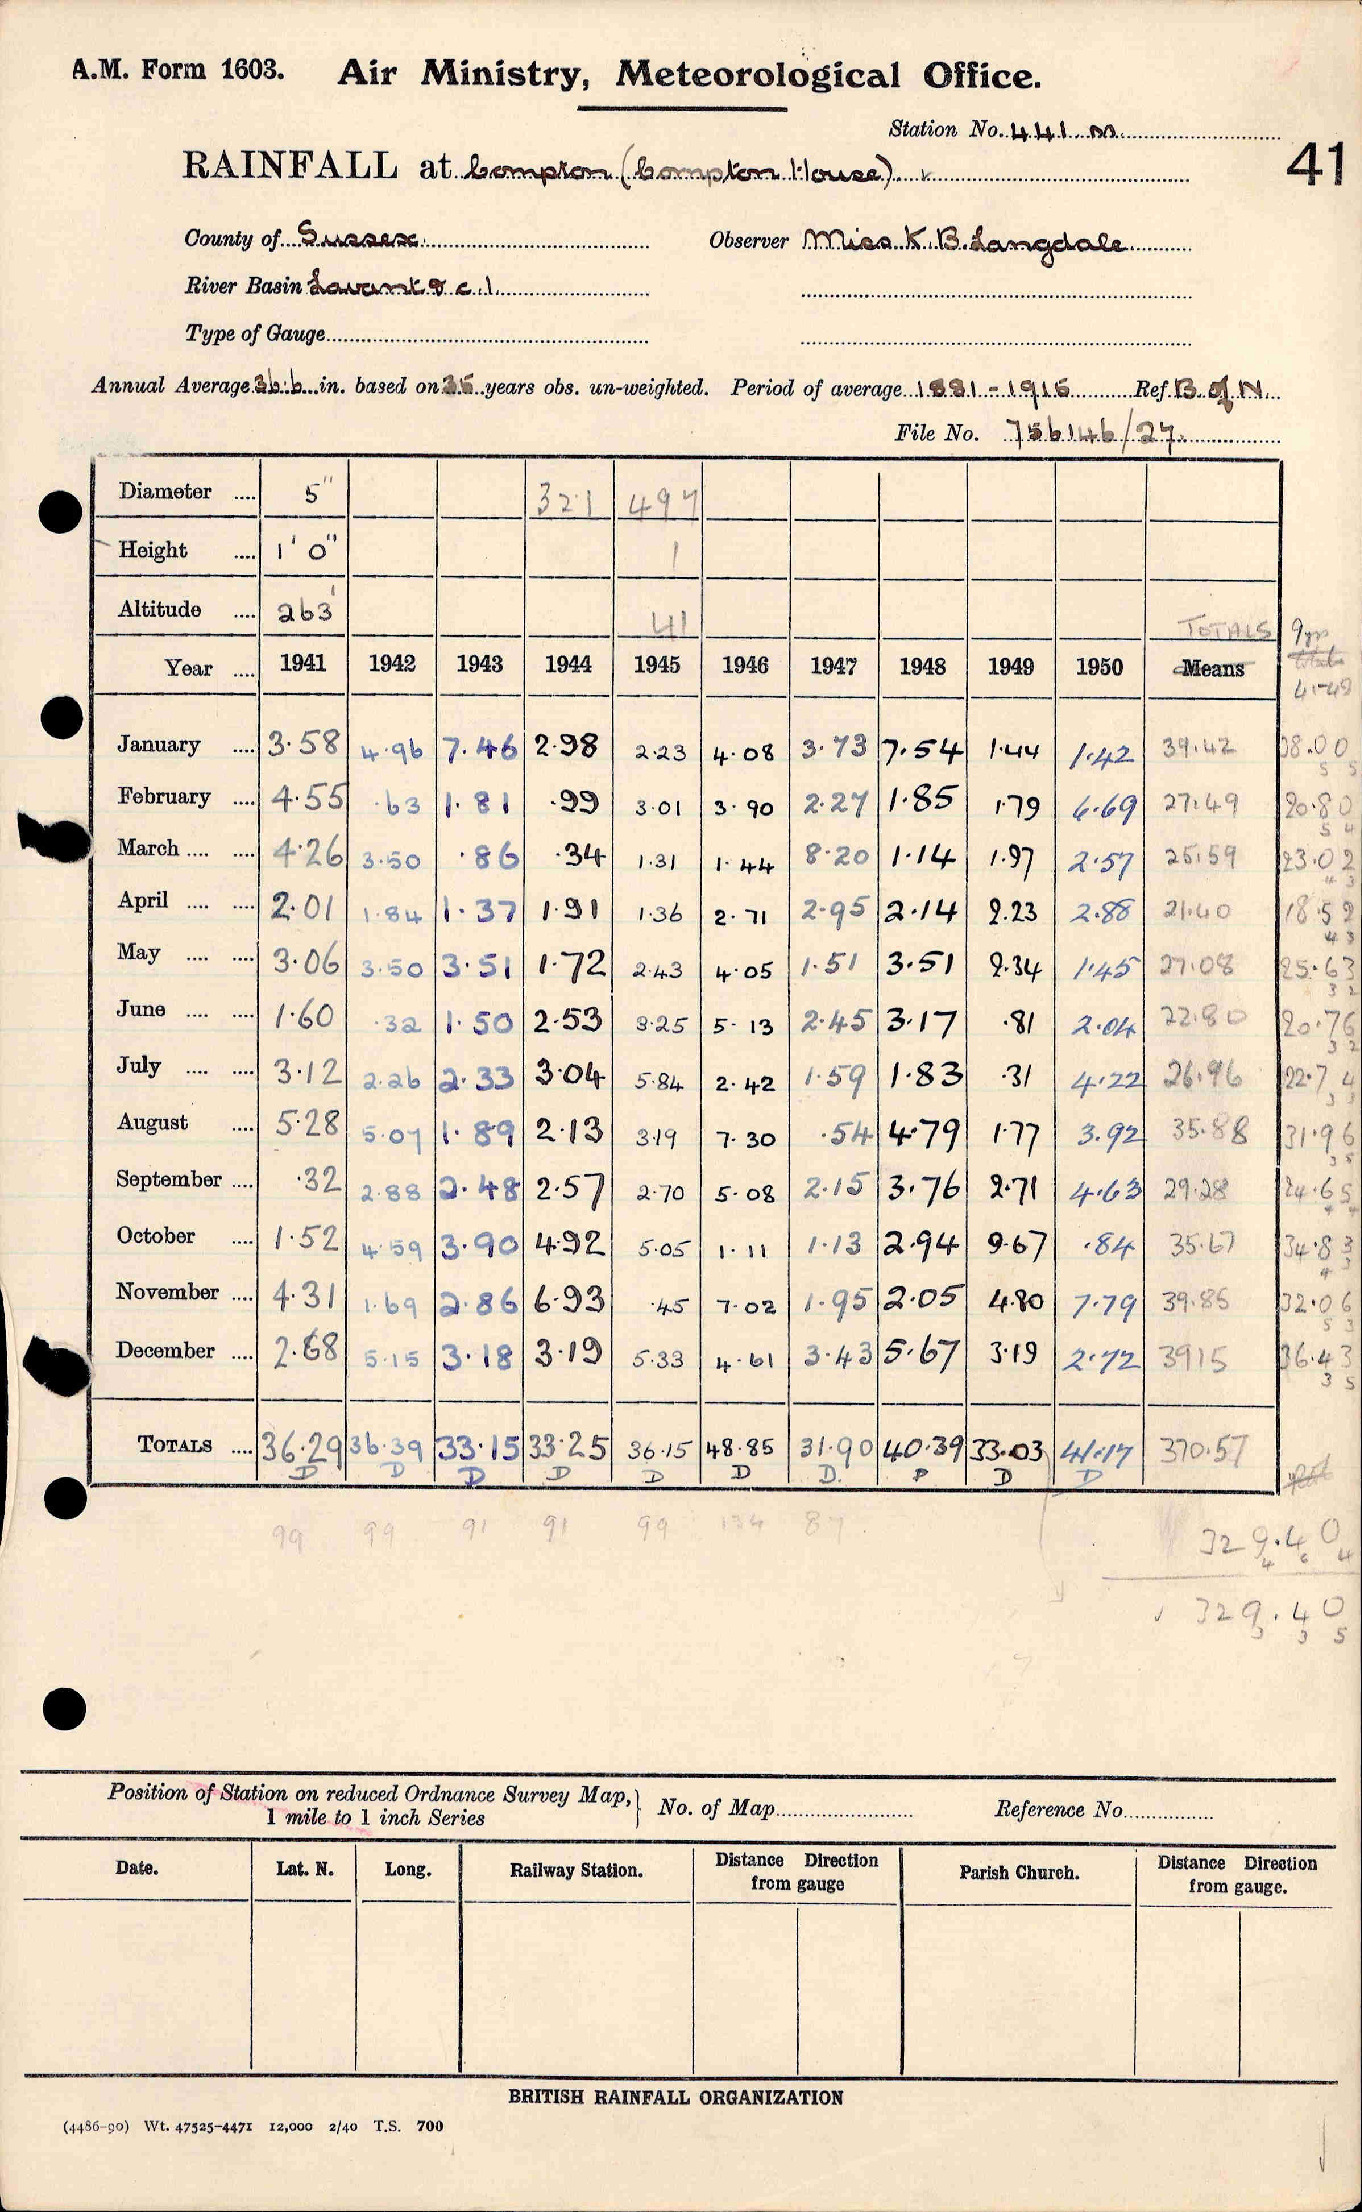 A.M. Form 1603. Air Ministry, Meteorological Office.
Station No. 441. M.
RAINFALL at Compton (Compton House). 41
County of Sussex. Observer Miss K. B. Langdale
River Basin Lavant & c. 1.
Type of Gauge
Annual Average 36.6 in. based on 35 years obs. un-weighted. Period of average 1881-1915 Ref. B. of N.
File No. 756146/27.
Diameter .... 5" 321 497
Height .... 1' 0" 1
Altitude .... 263' 41 TOTALS 9 yrs
Year .... 1941 1942 1943 1944 1945 1946 1947 1948 1949 1950 Means totals 41-49
January .... 3.58 4.96 7.46 2.98 2.23 4.08 3.73 7.54 1.44 1.42 39.42 38.00
February .... 4.55 .63 1.81 .99 3.01 3.90 2.27 1.85 1.79 6.69 27.49 20.80
March .... .... 4.26 3.50 .86 .34 1.31 1.44 8.20 1.14 1.97 2.57 25.59 23.02
April .... .... 2.01 1.84 1.37 1.91 1.36 2.71 2.95 2.14 2.23 2.88 21.40 18.52
May .... .... 3.06 3.50 3.51 1.72 2.43 4.05 1.51 3.51 2.34 1.45 27.08 25.63
June .... .... 1.60 .32 1.50 2.53 3.25 5.13 2.45 3.17 .81 2.04 22.80 20.76
July .... .... 3.12 2.26 2.33 3.04 5.84 2.42 1.59 1.83 .31 4.22 26.96 22.74
August .... 5.28 5.07 1.89 2.13 3.19 7.30 .54 4.79 1.77 3.92 35.88 31.96
September .... .32 2.88 2.48 2.57 2.70 5.08 2.15 3.76 2.71 4.63 29.28 24.65
October .... 1.52 4.59 3.90 4.92 5.05 1.11 1.13 2.94 9.67 .84 35.67 34.83
November .... 4.31 1.69 2.86 6.93 .45 7.02 1.95 2.05 4.80 7.79 39.85 32.06
December .... 2.68 5.15 3.18 3.19 5.33 4.61 3.43 5.67 3.19 2.72 39.15 36.43
TOTALS .... 36.29 36.39 33.15 33.25 36.15 48.85 31.90 40.39 33.03 41.17 370.57
D D D D D D D. P D D
99 99 91 91 99 134 87
329.40
329.40
Position of Station on reduced Ordnance Survey Map,
1 mile to 1 inch Series No. of Map Reference No.
Date. Lat. N. Long. Railway Station. Distance Direction from gauge Parish Church. Distance Direction from gauge.
BRITISH RAINFALL ORGANIZATION
(4486-90) Wt. 47525-4471 12,000 2/40 T.S. 700